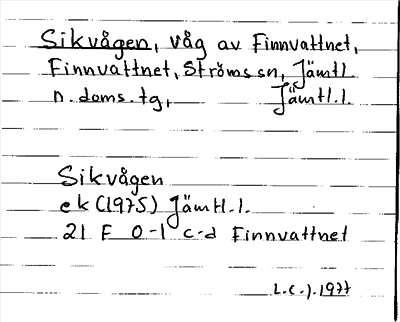 Sikvågen, våg av Finnvattnet,
Finnvattnet, Ströms sn, Jämtl.
n. doms. tg, Jämtl. l.
Sikvågen
ek (1975) Jämtl. l.
21 F 0-1 c-d Finnvattnet
L.C.J. 1977